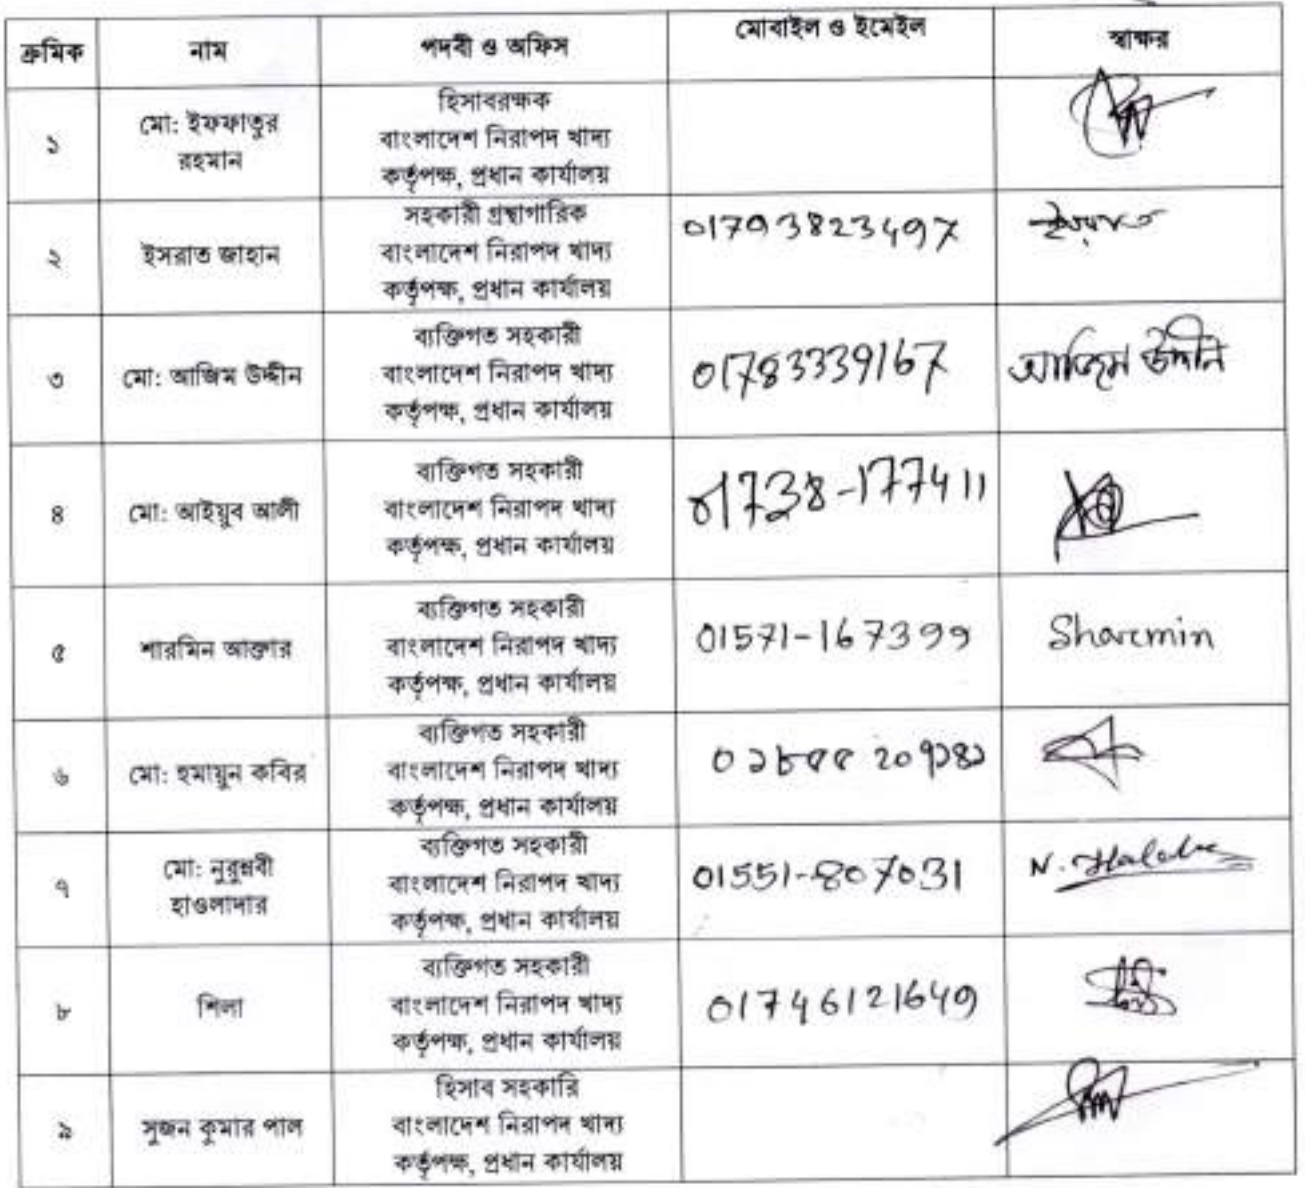 ক্রমিক
নাম
পদবী ও অফিস
মোবাইল ও ইমেইল
স্বাক্ষর
১
মো: ইফফাতুর
রহমান
হিসাবরক্ষক
বাংলাদেশ নিরাপদ খাদ্য
কর্তৃপক্ষ, প্রধান কার্যালয়
২
ইসরাত জাহান
সহকারী গ্রন্থাগারিক
বাংলাদেশ নিরাপদ খাদ্য
কর্তৃপক্ষ, প্রধান কার্যালয়
01793823497
৩
মো: আজিম উদ্দীন
ব্যক্তিগত সহকারী
বাংলাদেশ নিরাপদ খাদ্য
কর্তৃপক্ষ, প্রধান কার্যালয়
01783339167
আজিম উদ্দীন
৪
মো: আইয়ুব আলী
ব্যক্তিগত সহকারী
বাংলাদেশ নিরাপদ খাদ্য
কর্তৃপক্ষ, প্রধান কার্যালয়
01738-177411
৫
শারমিন আক্তার
ব্যক্তিগত সহকারী
বাংলাদেশ নিরাপদ খাদ্য
কর্তৃপক্ষ, প্রধান কার্যালয়
01571-167399
Sharmin
৬
মো: হুমায়ুন কবির
ব্যক্তিগত সহকারী
বাংলাদেশ নিরাপদ খাদ্য
কর্তৃপক্ষ, প্রধান কার্যালয়
৭
মো: নুরুন্নবী
হাওলাদার
ব্যক্তিগত সহকারী
বাংলাদেশ নিরাপদ খাদ্য
কর্তৃপক্ষ, প্রধান কার্যালয়
01551-807031
৮
শিলা
ব্যক্তিগত সহকারী
বাংলাদেশ নিরাপদ খাদ্য
কর্তৃপক্ষ, প্রধান কার্যালয়
01746121649
৯
সুজন কুমার পাল
হিসাব সহকারি
বাংলাদেশ নিরাপদ খাদ্য
কর্তৃপক্ষ, প্রধান কার্যালয়